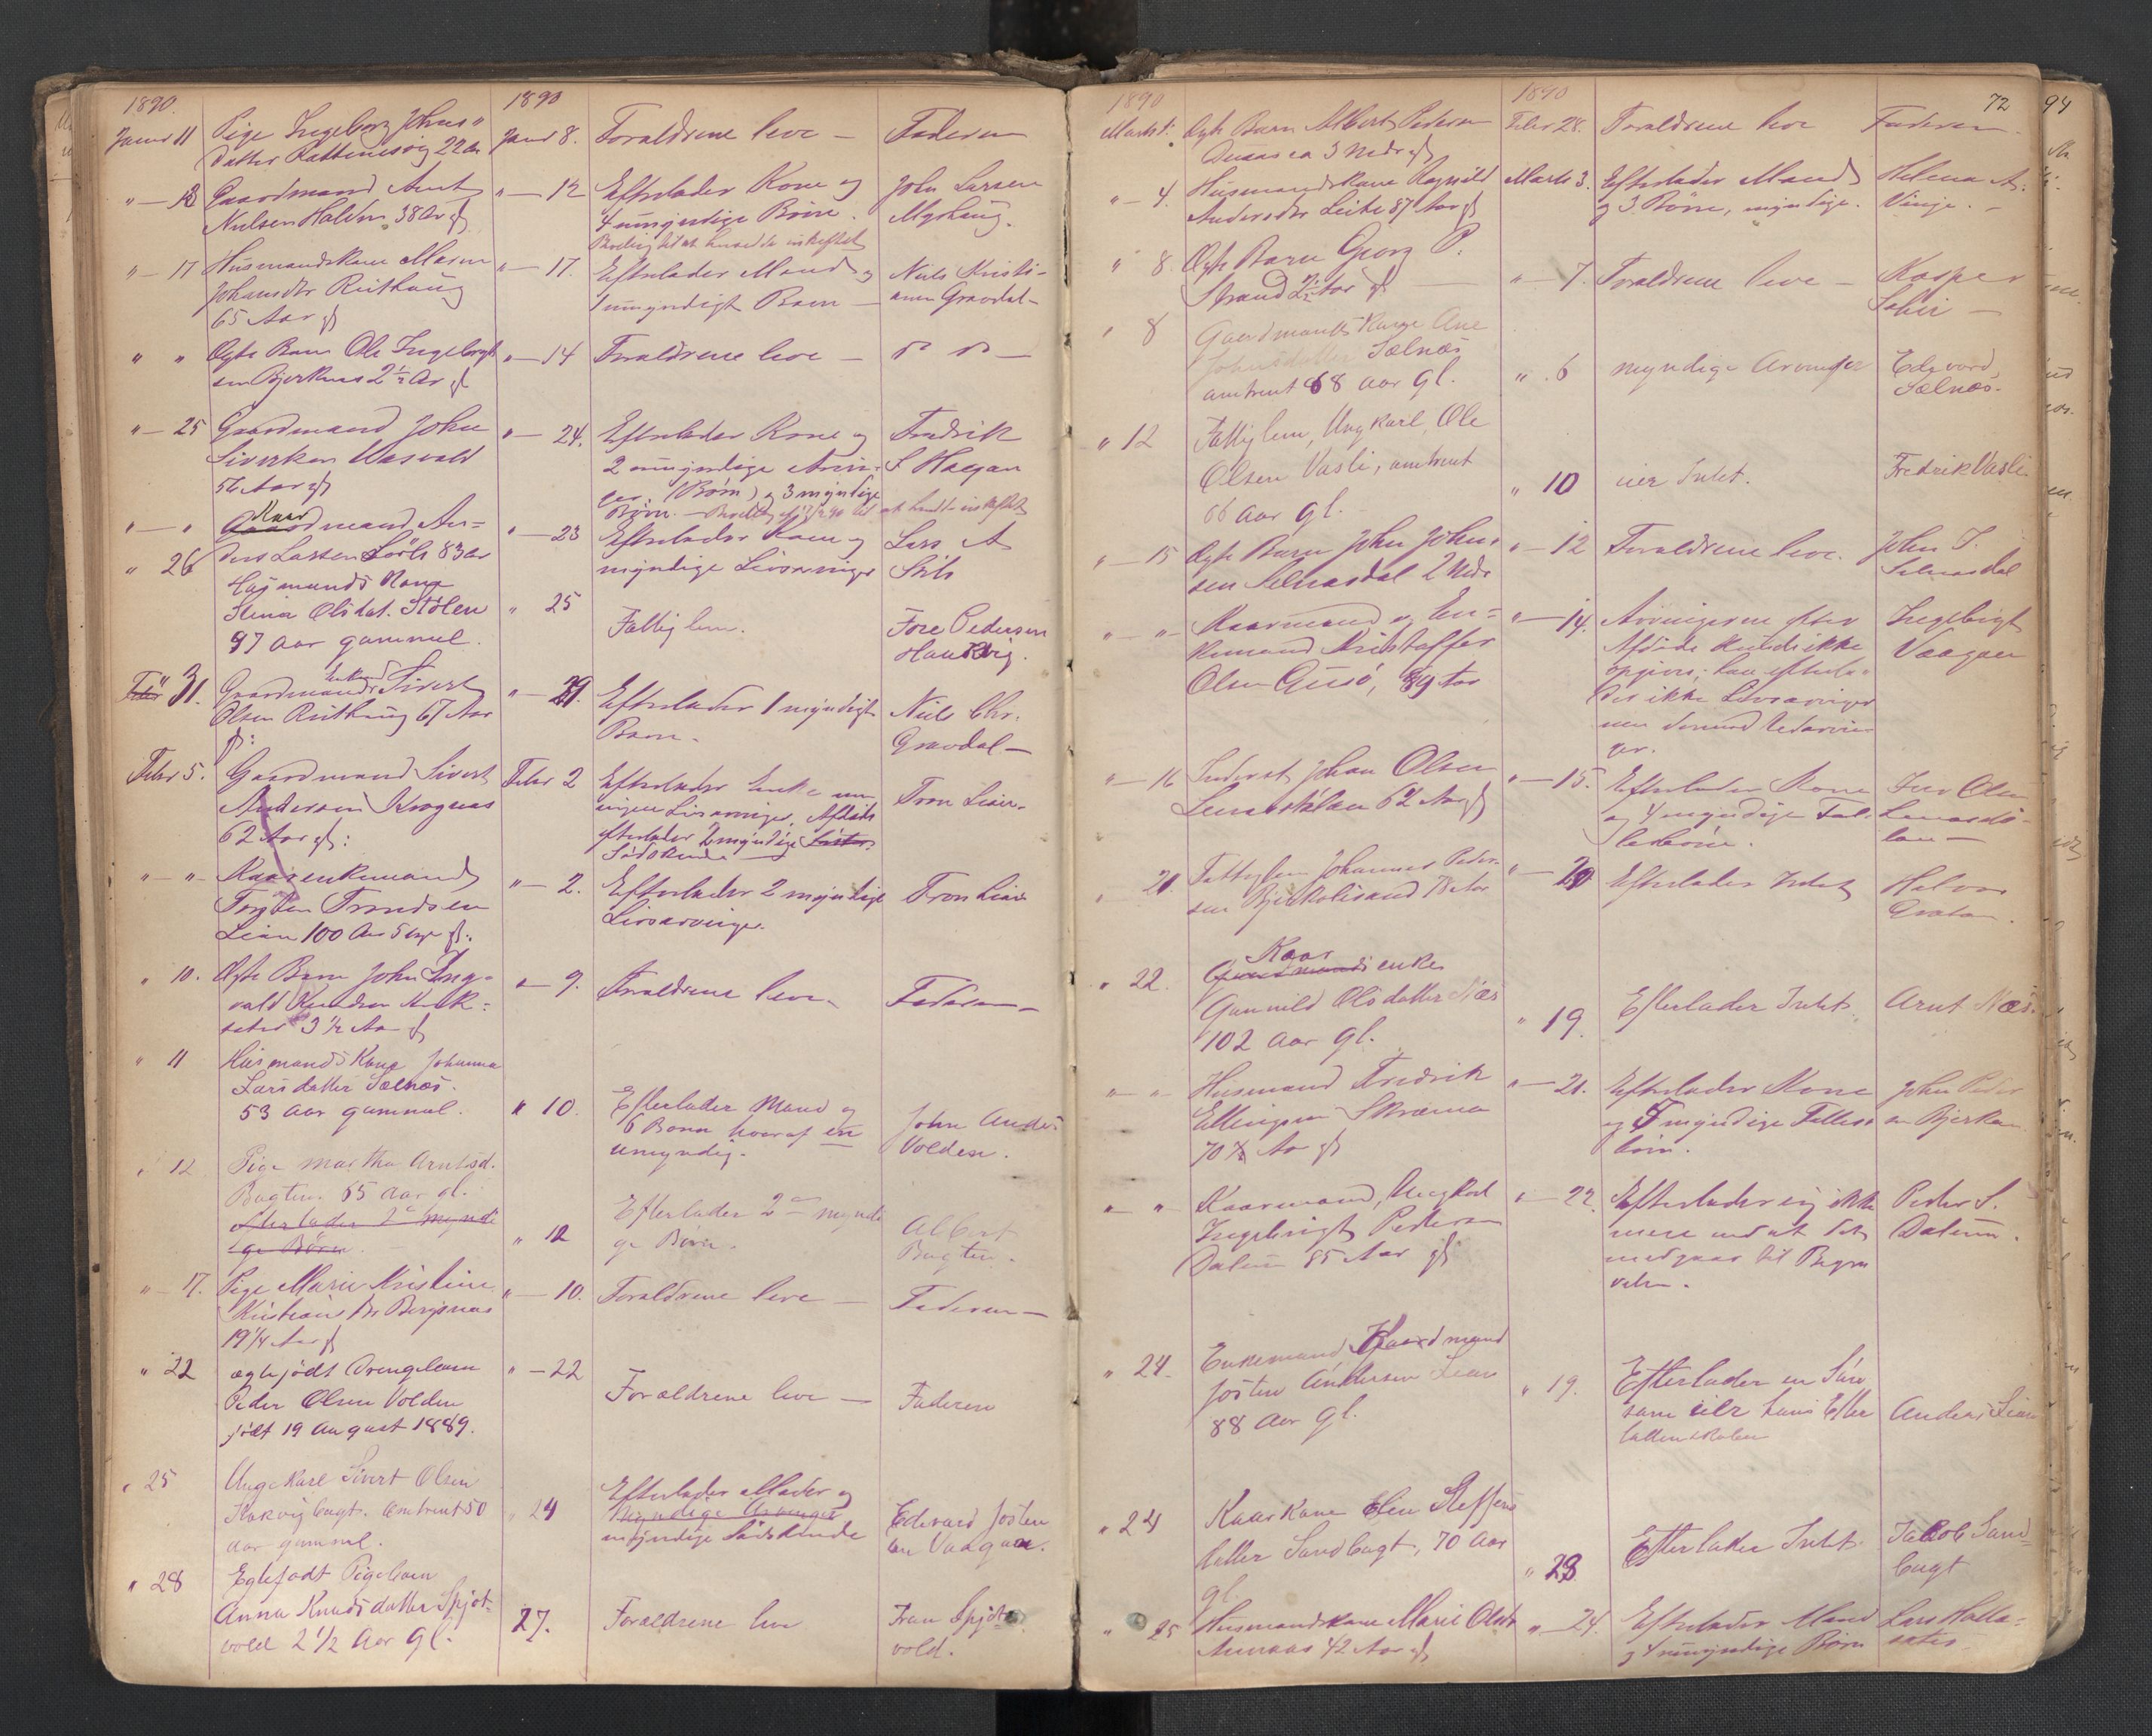 1890.
1890
Januar 11 Pige Ingeborg Johns-
datter 22 Aar
Janr 8. Forældrene leve — Faderen
" — 13 Gaardmand Arnt
Nielsen Halden 38 Aar gl
" — 12 Efterlader Kone og
4 umyndige Børn.
John Larsen
Myrhaug.
" — 17 Husmandskone Maren
Johansdtr Ruthaug
65 Aar gl
" — 17. Efterlader Mand og
1 umyndigt Barn —
Niels Kristi-
ansen Gravdal —
" " Ægte Barn Ole Ingebrigt-
sen Bjerknes 2½ Ar gl
" — 14 Forældrene leve —
" — 25 Gaardmand John
Siverksen Wasvald
56 Aar gl
" — 24. Efterlader Kone og
2 umyndige Arvin-
ger (Børn) og 3 myndige
Børn. —
Fredrik
S. Haagan
" — " Kaar
Gaardmand An-
ders Larsen 83 Ar
" — 23 Efterlader Kone og
myndige Livsarvinger
Lars A.
" 26 Husmands Kone
Stina Olsdat. Stølen
97 Aar gammel.
" 25 Fattiglem.
Tore Pedersen
Haukvig.
Febr 31. Gaardmands Sivert
Olsen Ruthaug 67 Aar
gl:
" — 29. Efterlader 1 myndigt
Barn.
Niels Chr.
Gravdal —
Febr 5. Gaardmand Sivert
Andersen Krognes
62 Aar gl:
Febr 2 Efterlader Enke men
ingen Livsarvinger, Afdøde
efterlader 2 myndige
Sødskende —
Tron Lian.
" — " Kaarenkemand
Torsten Trondsen
Lian 100 Aar 5 gl:
" — 2. Efterlader 2 myndige
Livsarvinger.
Tron Lian
" 10. Ægte Barn John Ing-
vald Knudsen
3½ Aar gl
" — 9. Forældrene leve. Faderen —
" 11 Husmands Kone Johanna
Larsdatter Sælnæs.
53 Aar gammel.
" 10. Efterlader Mand og
6 Børn hvoraf en
umyndig.
John Anders
Volden.
" 12 Pige Martha Arntsd.
Bugten. 65 Aar gl.
Efterlader 2de myndi
ge Børn.
" 12 Efterlader 2de myndi
ge Børn.
Albert
Bugten.
" — 17. Pige Marie Kristine
Kristiansdtr Bergsnæs
19¼ Aar gl
" — 10. Forældrene leve — Faderen —
" 22 ægtefødt Drengebarn
Peder Olsen Volden
født 19 August 1889.
" — 22
Forældrene leve — Faderen
" 25 Ungekarl Sivert Olsen
Kokvigbugt. Omtrent 50
Aar gammel.
" 24 Efterlader Moder og
myndige Arvinger
myndige Sødskende
Edevard Josten
sen Vaagan.
" 28 Egtefødt Pigebarn
Anna Knudsdatter Spjøt-
vold 2½ Aar gl.
27. Forældrene leve
Spjøt-
vold.
1890
1890
72
94
Marts 1. Ægte Barn Albert Pedersen
Aunaas ca 3 Mdr gl
Febr 28. Forældrene leve Faderen.
" — 4. Husmandskone Ragnild
Andersdtr Leite 87 Aar gl
Marts 3. Efterlader Mand
og 3 Børn, myndige.
Helena A.
Vinje. —
" 8. Ægte Barn Georg P.
Strand 2½ Aar gl —
" — 7. Forældrene leve — Kasper
" 8 Gaardmands Kone Ane
Johnsdatter Sælnæs
omtrent 68 Aar gl.
" . 6 myndige Arvinger Edevard
Sælnæs.
" 12 Fattiglem, Ungkarl, Ole
Olsen Vasli, omtrent
66 Aar gl. —
" 10 eier Intet. Fredrik Vasli
" — 15 Ægte Barn John John-
sen Selnesdal 2 Mdr
" — 12 Forældrene leve. John J.
Selnesdal
" — " Kaarmand og En-
kemand Kristoffer
Olsen, 89 Aar
" — 14. Arvingerne efter
Afdøde kunde ikke
opgives; han efterla-
des ikke Livsarvinger
men derimod Udarvin-
ger.
Ingebrigt
Vaagan
" — 16 Inderst Johan Olsen
62 Aar gl
" — 15. Efterlader Kone
og 4 myndige Fæl-
lesbørn.
" 21 Fattiglem Johannes Peder-
sen
" — 20 Efterlader Intet Halvor
" 22. Kaar
Gaardmands enke
Gunnild Olsdatter Næs
102 Aar gl.
" 19. Efterlader Intet. Arnt Næs.
" — " Husmand Fredrik
Ellingsen
70 Aar gl
" — 21. Efterlader Kone
og 5 myndige Fælles
børn.
John Peder
sen Bjerkan
" — " Kaarmand, Ungkarl
Ingebrigt Pedersen
Dalum 85 Aar gl
" — 22. Efterlader sig ikke
mere end at det
medgaar til Begra
velsen.
Peder S.
Dalum.
" 24. Enkemand Kaardmand
Josten Andersen Lian
88 Aar gl.
" 19. Efterlader en Søn
som eier hans Efter
ladenskaber
Anders Lian
" 24 Kaarkone Elen Steffens
datter Sandbugt, 70 Aar
gl.
" 23 Efterlader Intet. Jakob Sand-
bugt
" 25 Husmandskone Marie Olsdtr
Aunaas 42 Aar gl
" — 24. Efterlader Mand
og 4 umyndige Børn
Lars Halla-